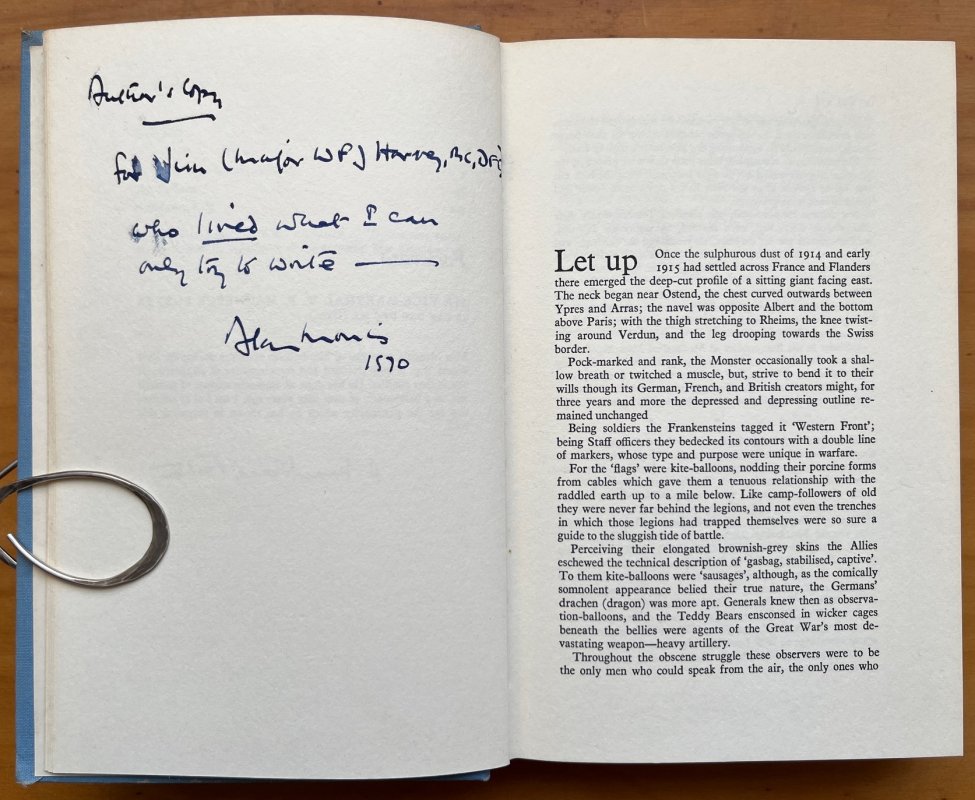 Author's Copy
for Jim (Major WFJ Harvey, MC, DFC)
who lived what I can
only try to write —
Alan Morris
1970
Let up Once the sulphurous dust of 1914 and early
1915 had settled across France and Flanders
there emerged the deep-cut profile of a sitting giant facing east.
The neck began near Ostend, the chest curved outwards between
Ypres and Arras; the navel was opposite Albert and the bottom
above Paris; with the thigh stretching to Rheims, the knee twist-
ing around Verdun, and the leg drooping towards the Swiss
border.
Pock-marked and rank, the Monster occasionally took a shal-
low breath or twitched a muscle, but, strive to bend it to their
wills though its German, French, and British creators might, for
three years and more the depressed and depressing outline re-
mained unchanged
Being soldiers the Frankensteins tagged it 'Western Front';
being Staff officers they bedecked its contours with a double line
of markers, whose type and purpose were unique in warfare.
For the 'flags' were kite-balloons, nodding their porcine forms
from cables which gave them a tenuous relationship with the
raddled earth up to a mile below. Like camp-followers of old
they were never far behind the legions, and not even the trenches
in which those legions had trapped themselves were so sure a
guide to the sluggish tide of battle.
Perceiving their elongated brownish-grey skins the Allies
eschewed the technical description of 'gasbag, stabilised, captive'.
To them kite-balloons were 'sausages', although, as the comically
somnolent appearance belied their true nature, the Germans'
drachen (dragon) was more apt. Generals knew then as observa-
tion-balloons, and the Teddy Bears ensconsed in wicker cages
beneath the bellies were agents of the Great War's most de-
vastating weapon—heavy artillery.
Throughout the obscene struggle these observers were to be
the only men who could speak from the air, the only ones who